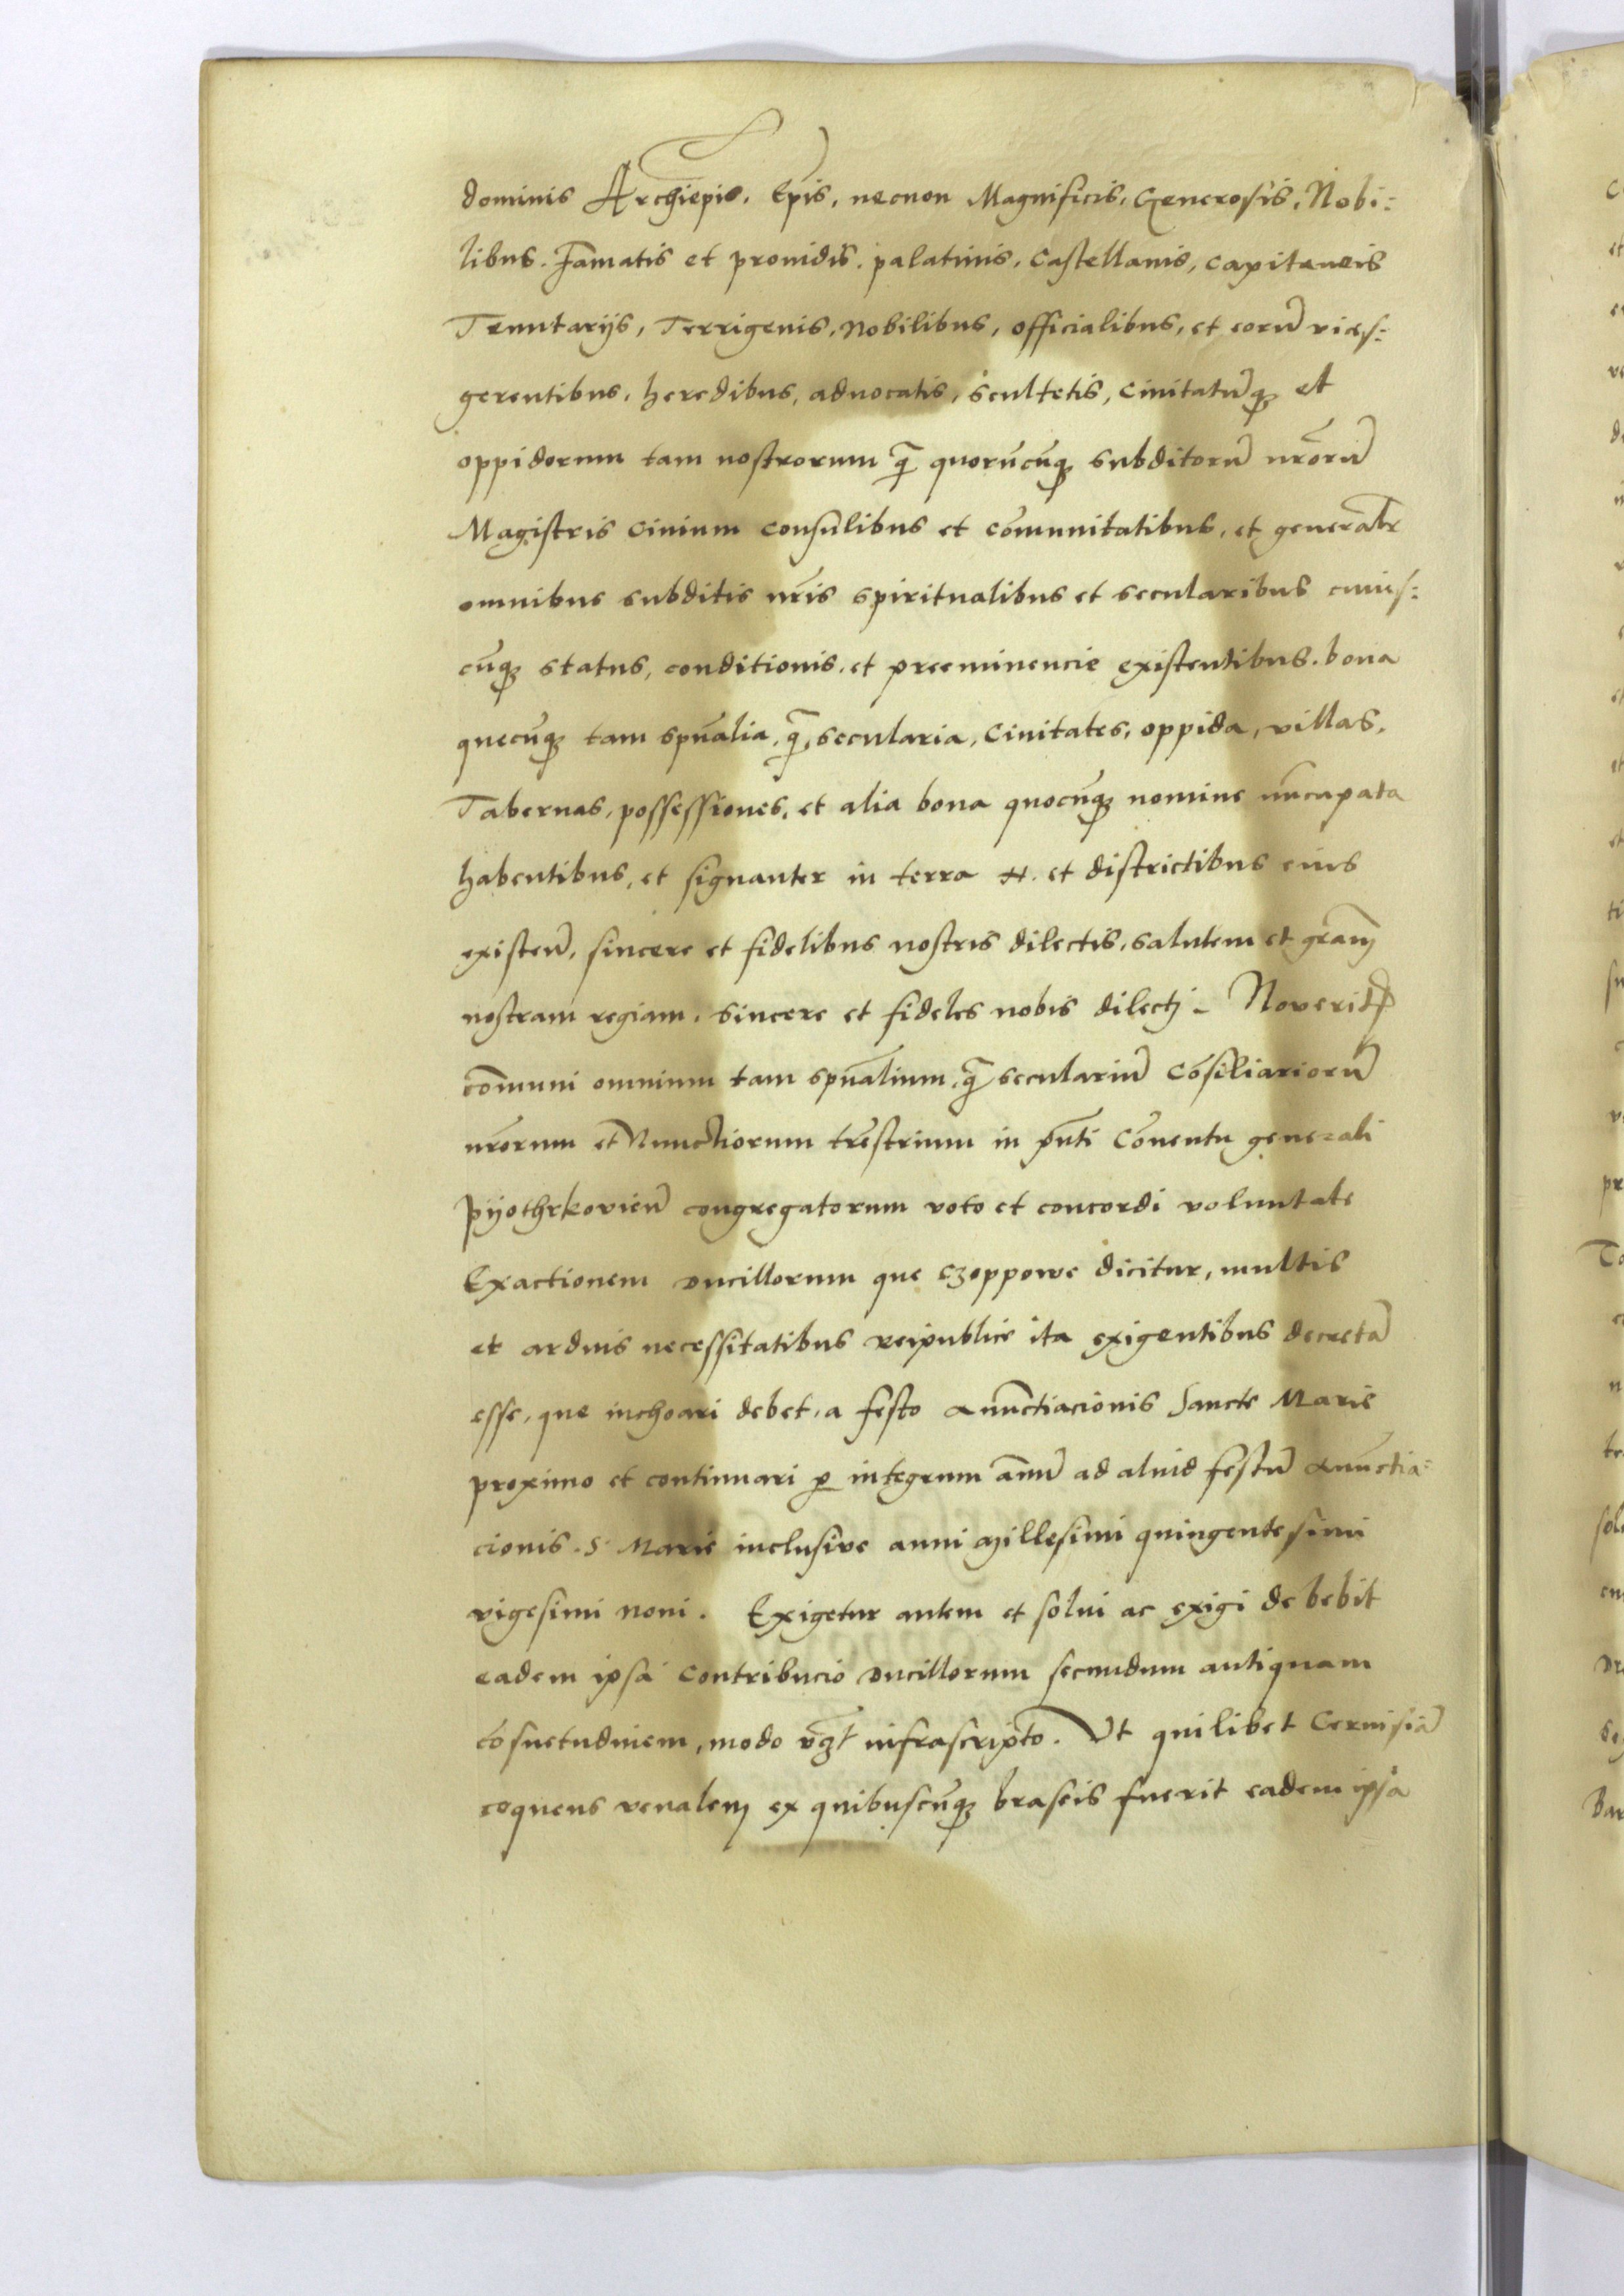 dominis Archiepis, Epis, necnon Magnificis, Generosis, Nobi:
libus. Famatis et prouidis. palatinis, Castellanis, capitaneis
Tenutarijs, Terrigenis, Nobilibus, officialibus, et eorū vices:
gerentibus, heredibus, aduocatis, scultetis, Ciuitatūq3 et
oppidorum tam nostrorum q̄ quorūcūq3 subditorū nrōrū
Magistris Ciuium Consulibus et Cōmunitatibus, et generalr̄
omnibus subditis nrīs spiritualibus et secularibus cuius:
cūq3 status, conditionis, et preeminencie existentibus. bona
quecūq3 tam spūalia, q̄ secularia, Ciuitates, oppida, villas,
Tabernas, possessiones, et alia bona quocūq3 nomine nūcupata
habentibus, et signanter in terra N. et districtibus eius
existen̄, sincere et fidelibus nostris dilectis, salutem et grām
nostram regiam. Sincere et fideles nobis dilecti. Noveritis
cōmuni omnium tam spūalium, q̄ seculariū Cōsiliariorū
nrōrum et Nunctiorum trēstrium in pn̄ti Cōuentu generali
Pyothrkovien̄ congregatorum voto et concordi voluntate
Exactionem Ducillorum que czoppowe dicitur, multis
et arduis necessitatibus reipublice ita exigentibus decretā
esse, que inchoari debet, a festo Anūctiacionis Sancte Marie
proximo et continuari p integrum annū ad aliud festū Anūctia:
cionis. S. Marie inclusive anni Millesimi quingentesimi
vigesimi noni. Exigetur autem et solui ac exigi debebit
eadem ipsa Contribucio Ducillorum secundum antiquam
cōsuetudinem, modo vz̄ infrascripto. Vt quilibet Ceruisiā
coquens venalem ex quibuscūq3 braseis fuerit eadem ipsa